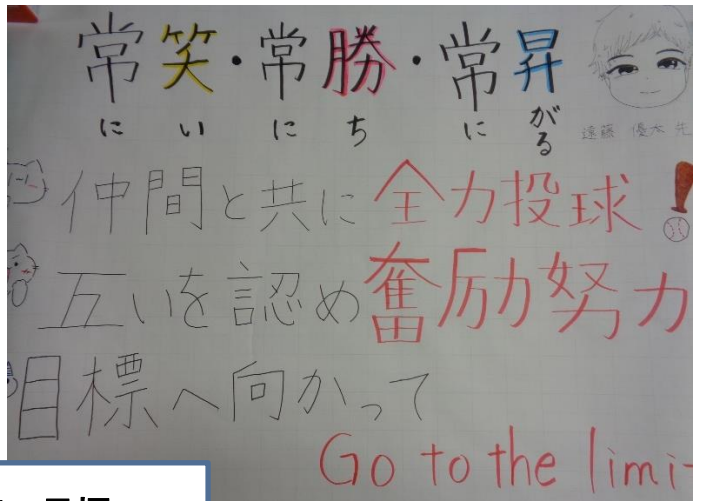 常笑・常勝・常昇
に い に ち に がる
遠藤 優太 先
仲間と共に全力投球!
互いを認め奮励努力
目標へ向かって
Go to the limi